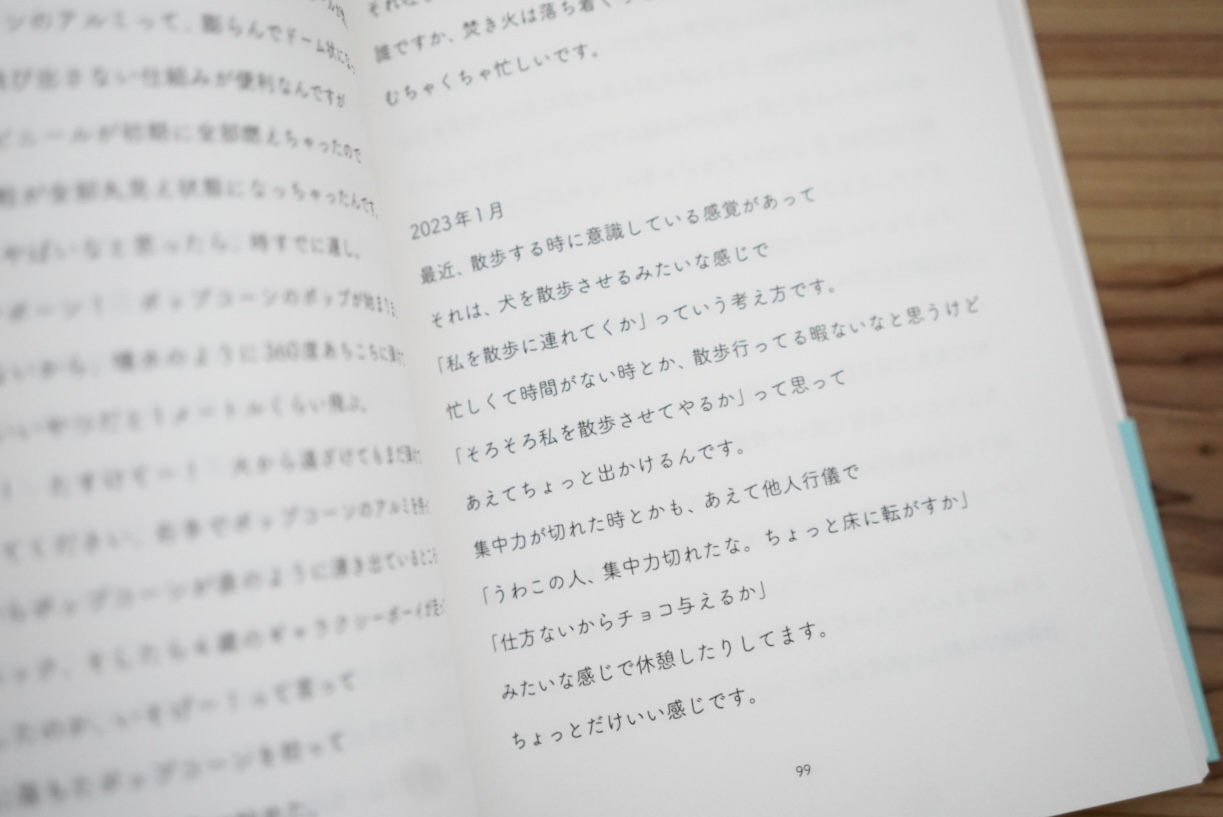 ンのアルミって、膨らんでドーム状にな
び出さない仕組みが便利なんですが
ビニールが初期に全部燃えちゃったので
が全部丸見え状態になっちゃったんです。
やばいなと思ったら、時すでに遅し。
ポーン！　ポップコーンのポップが始まり
ないから、噴水のように360度あちこちに
いいやつだと1メートルくらい飛ぶ。
！　たすけてー！　火から遠ざけてもまだ
てください、右手でポップコーンのアルミを
らポップコーンが泉のように湧き出ているところ
そしたら4歳のギャラクシーボーイが
ったのか、いそげー！って言って
ポップコーンを拾って
誰ですか、焚き火は落ち着く
むちゃくちゃ忙しいです。
2023年1月
最近、散歩する時に意識している感覚があって
それは、犬を散歩させるみたいな感じで
「私を散歩に連れてくか」っていう考え方です。
忙しくて時間がない時とか、散歩行ってる暇ないなと思うけど
「そろそろ私を散歩させてやるか」って思って
あえてちょっと出かけるんです。
集中力が切れた時とかも、あえて他人行儀で
「うわこの人、集中力切れたな。ちょっと床に転がすか」
「仕方ないからチョコ与えるか」
みたいな感じで休憩したりしてます。
ちょっとだけいい感じです。
99